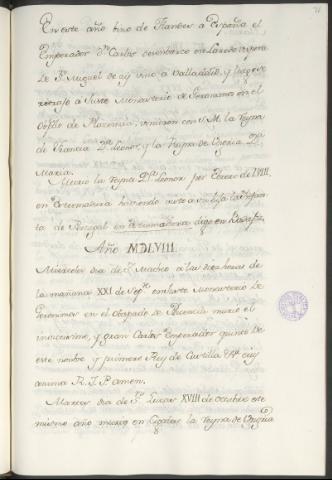 En este año bino de Flandes a España el
Emperador Dn. Carlos desembarco en Laredo vispera
de Sn. Miguel de ay vino a Valladolid, y luego se
retrajo a Juste Monasterio de Geronimos en el
Obpdo de Plasencia: vinieron con S.M. la Reyna
de Francia Da. Leonor, y la Reyna de Ungria Da.
Maria.
Murio la reyna Da. Leonor por Febrero de LVIII,
en Estremadura haviendo visto a su hija la Infan
ta de Portugal en Estremadura digo en Badajoz
Año MDLVIII.
Miercoles dia de S. Matheo a las dos horas de
la mañana XXI de Sepre. en Juste Monasterio de
Geronimos en el Obispado de Plasencia murio el
invictisimo, y gran Carlos Emperador quinto de
este nombre y primero Rey de Castilla &a. cuy
anima R.I.P. amen.
Martes dia de Sn. Lucas XVIII de octubre este
mismo año murio en Cigales la Reyna de Ungria